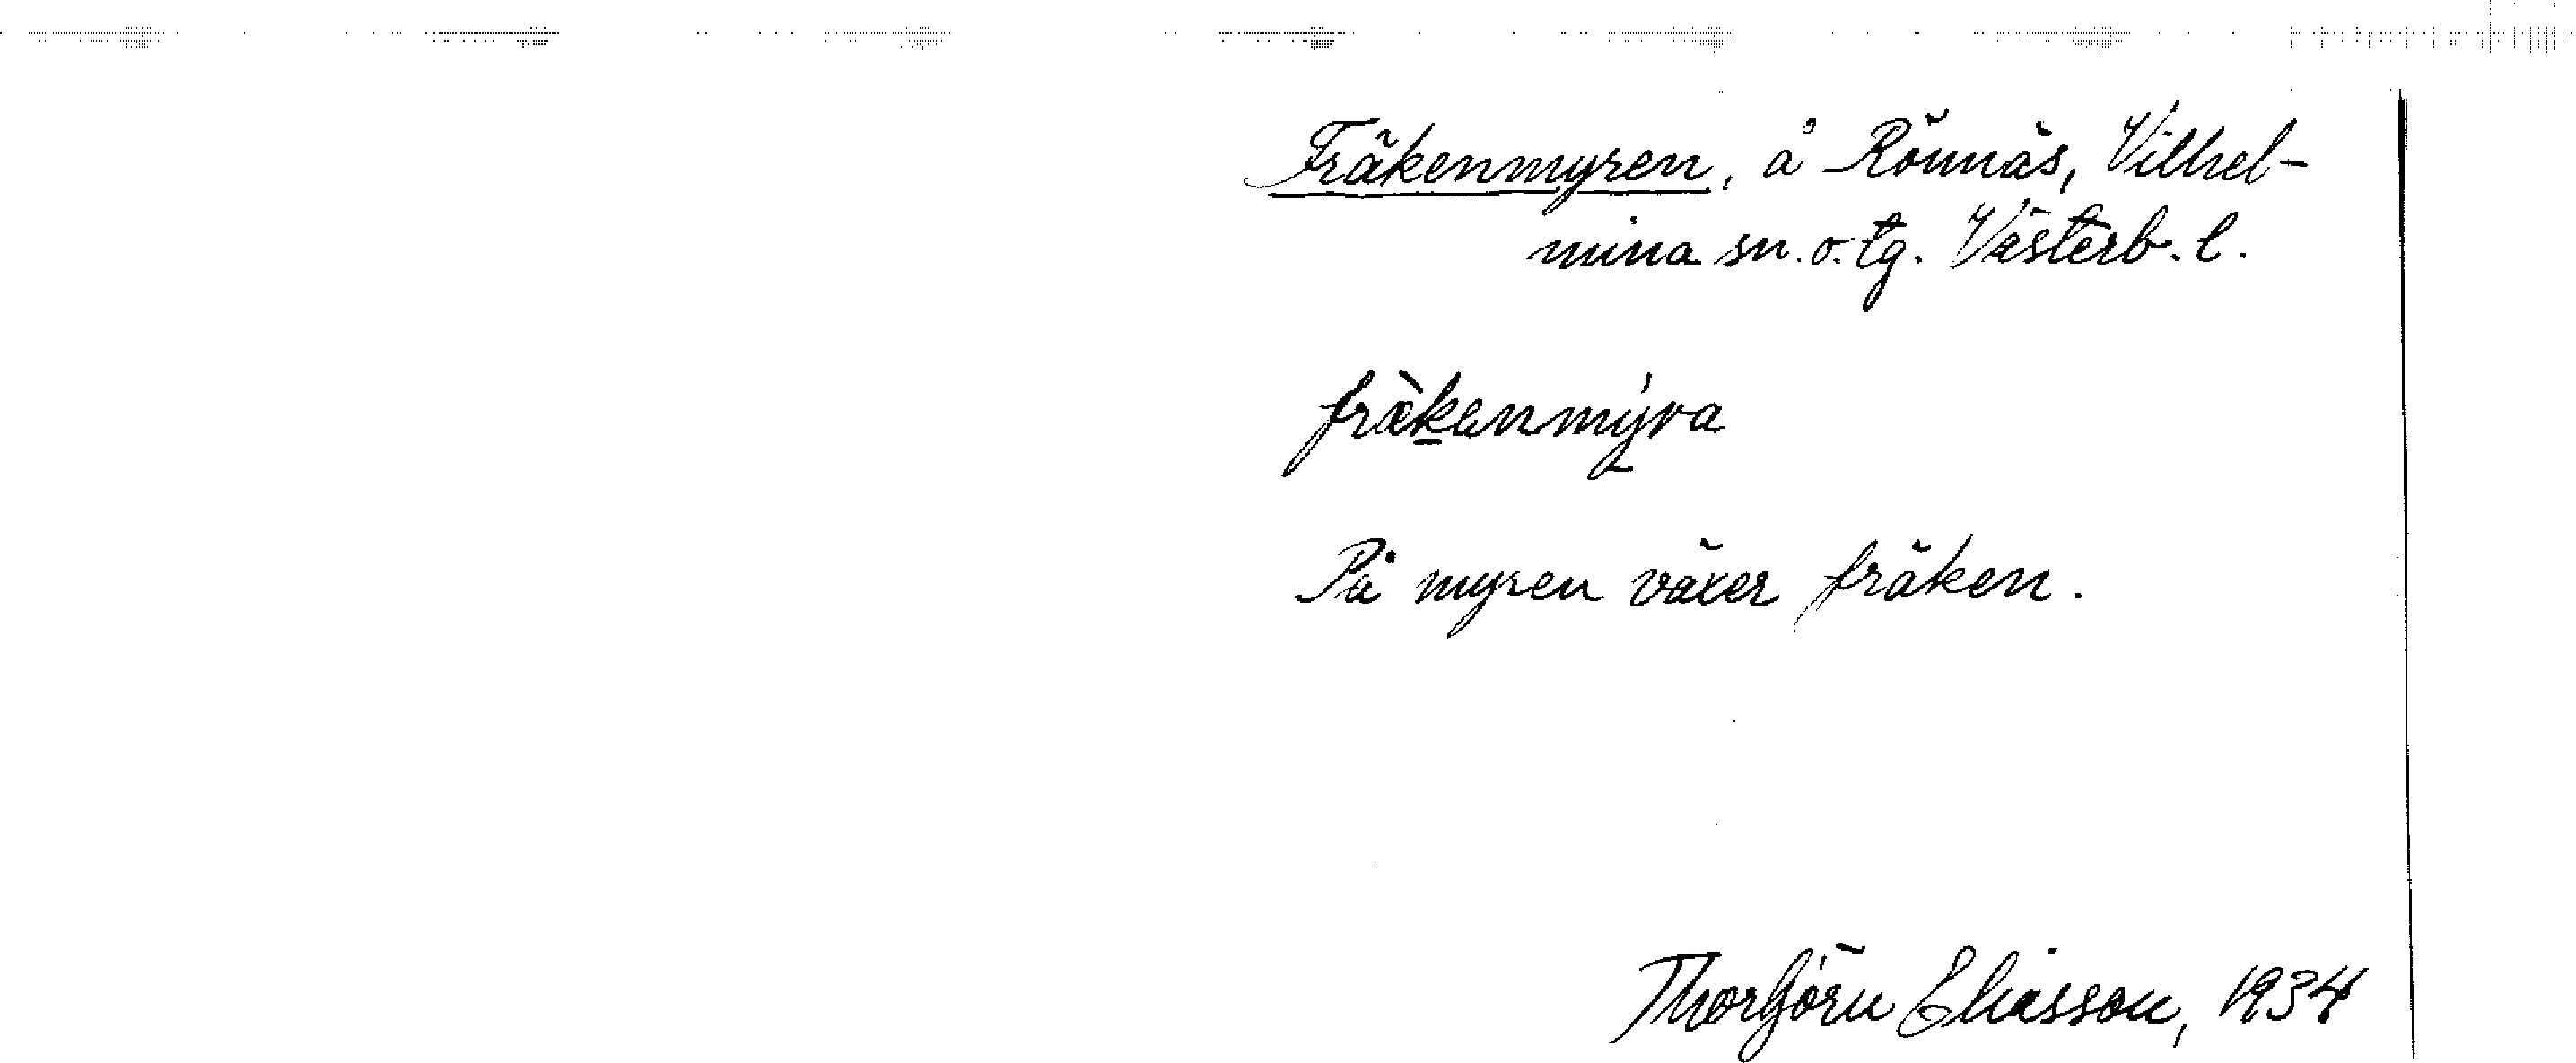 Fräkenmyren, å Rönnäs, Vilhel-
mina sn. o. tg. Västerb. l.
fräkenmýra
På myren växer fräken.
Thorbjörn Eliasson, 1934